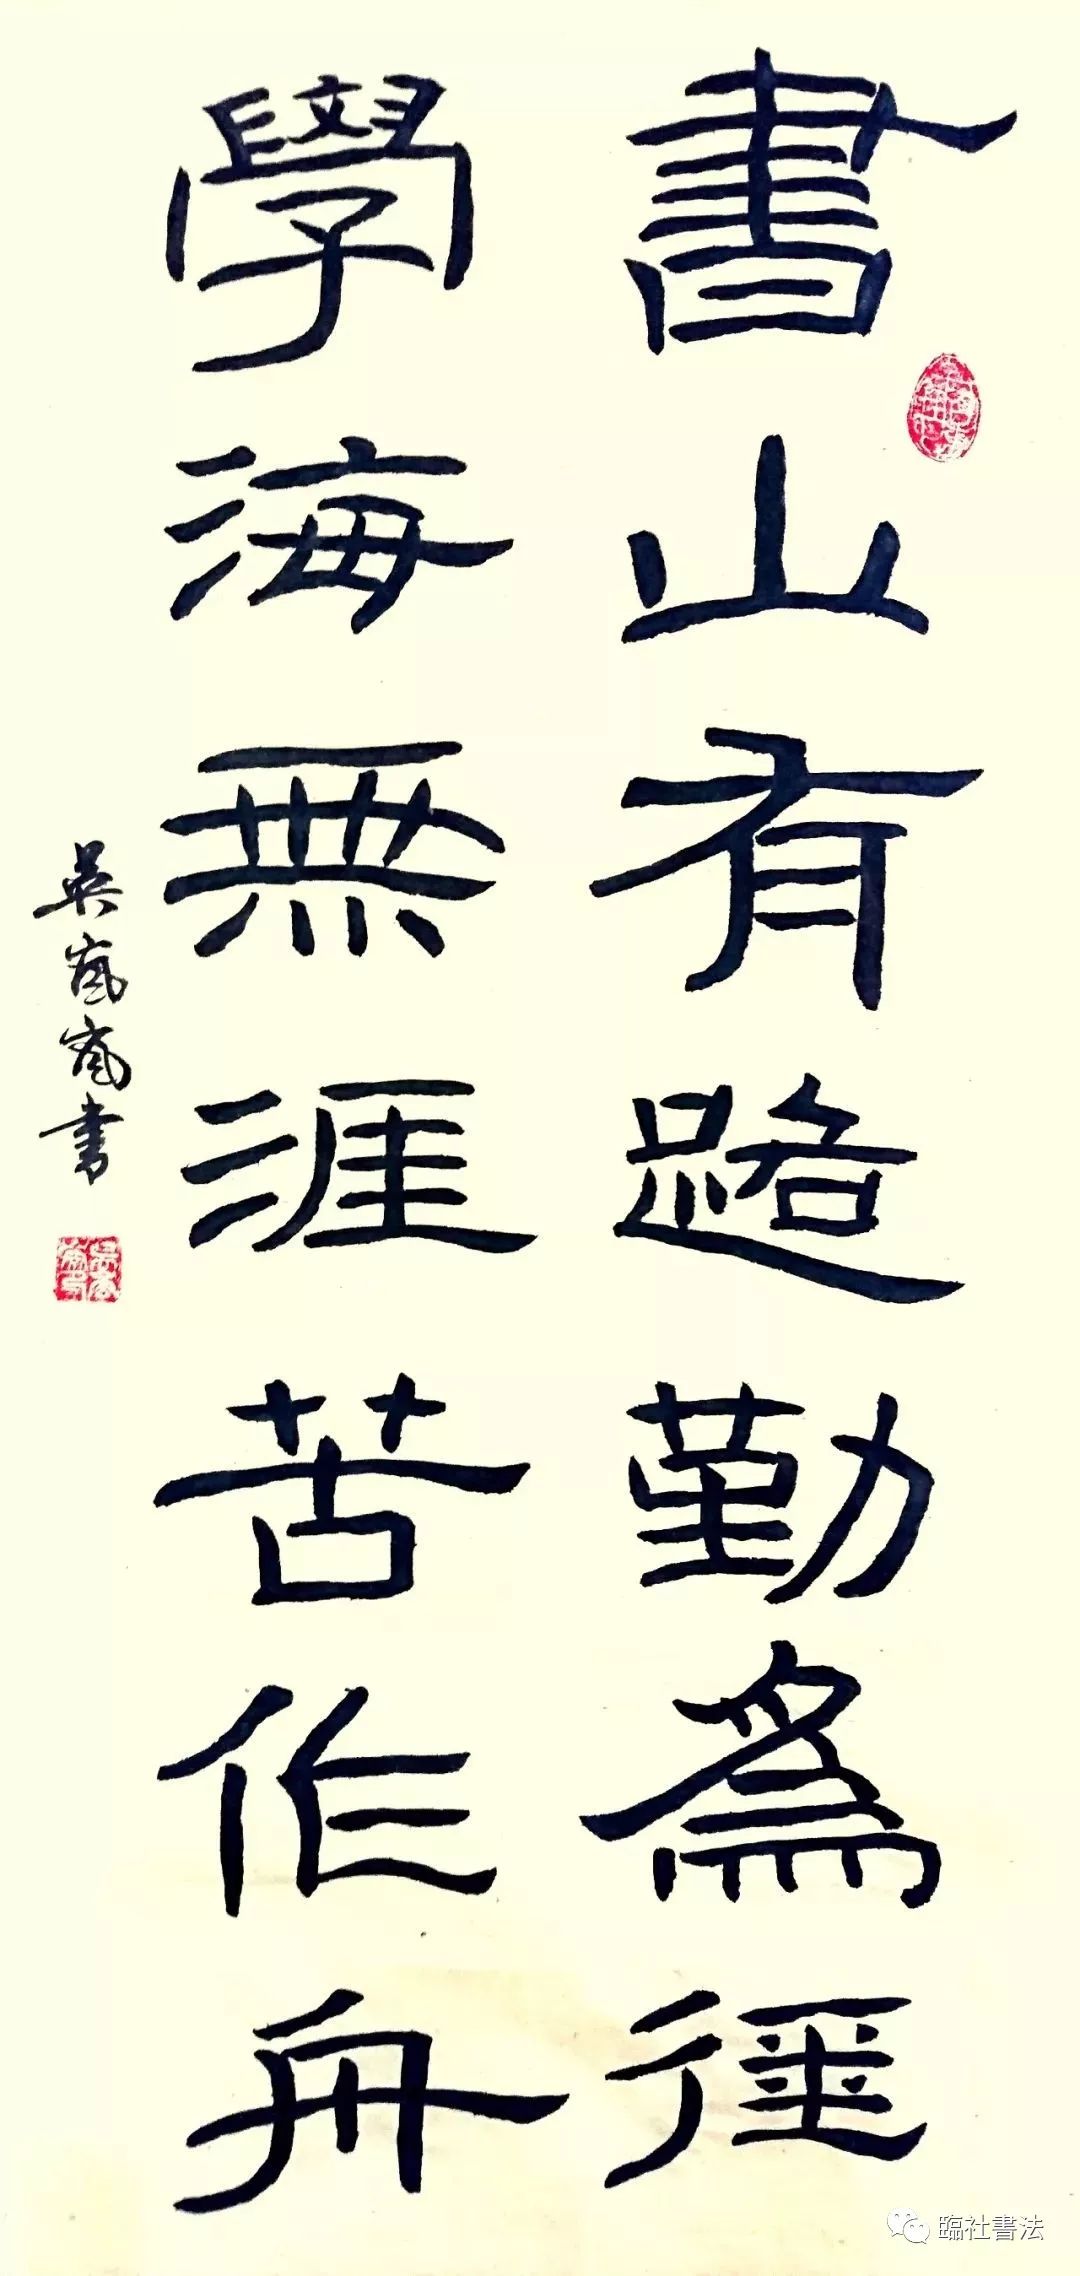 書山有路勤為徑
學海無涯苦作舟
臨社書法